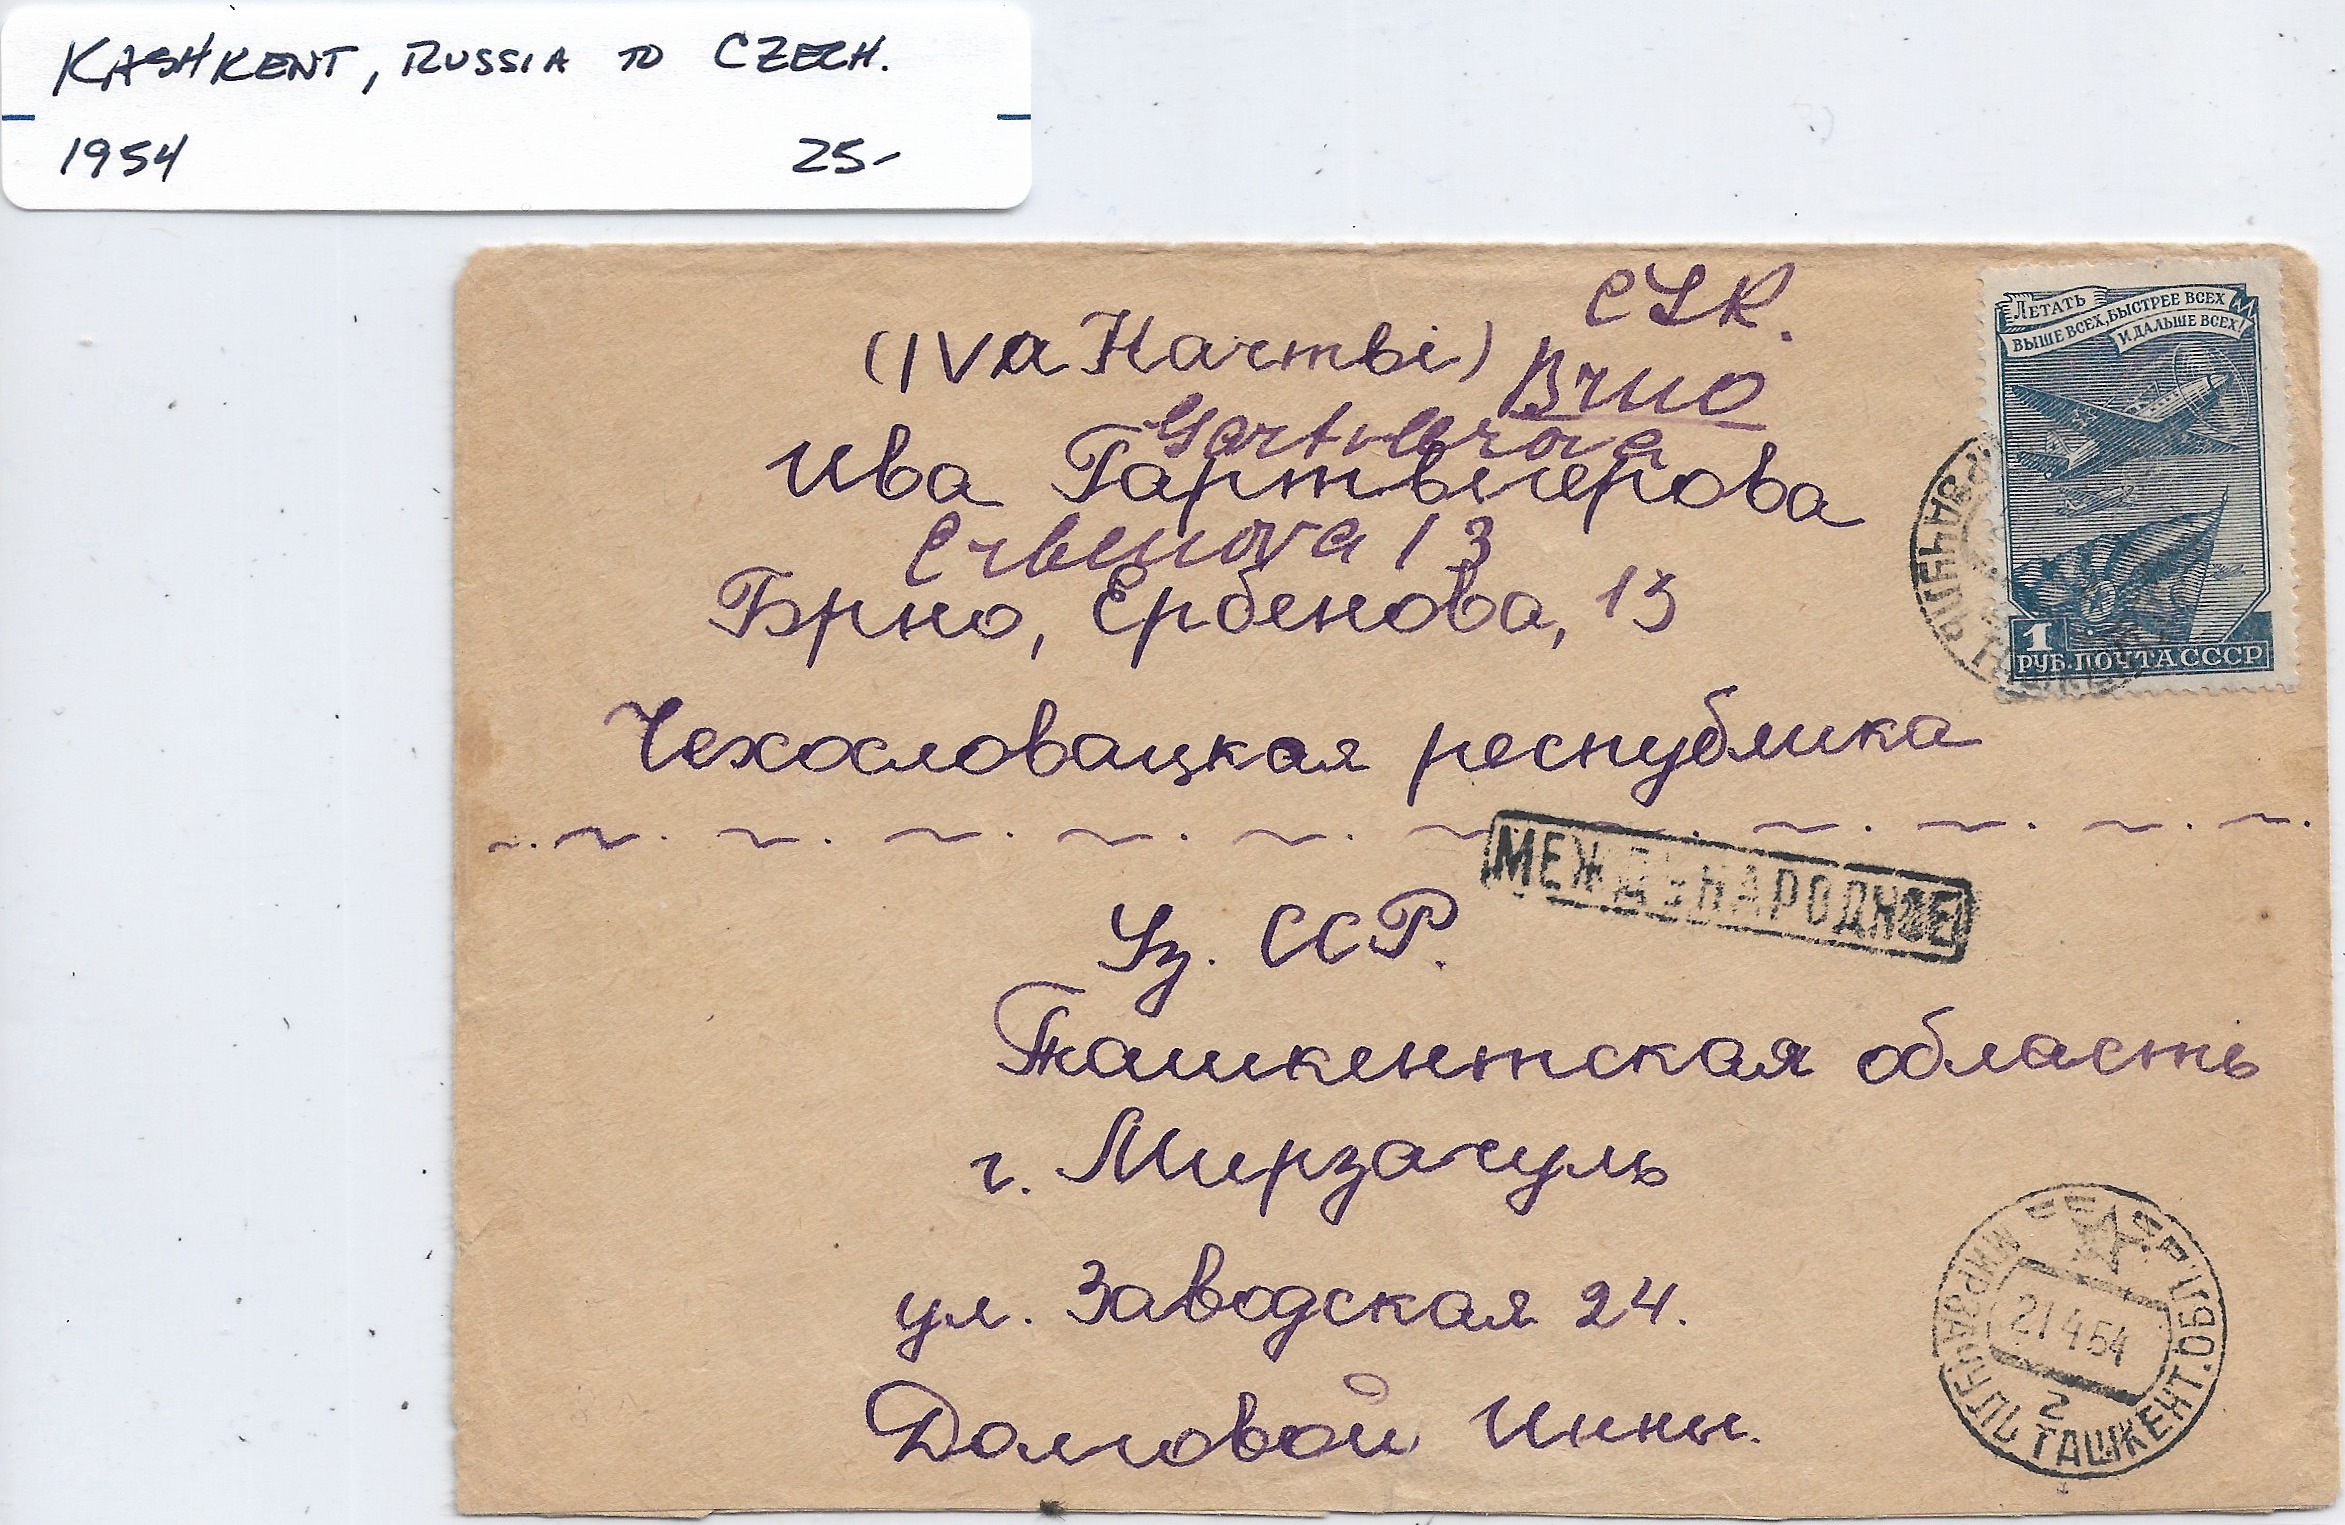 KASHKENT, RUSSIA TO CZECH.
1954 25-
ČSR.
(IVa Натьі) Brno
Ива Гартвигерова
Erbenova 13
Брно, Ербенова, 13
Чехословацкая республика
МЕЖДУНАРОДНОЕ
Уз. ССР.
Ташкентская область
г. Мирзачуль
ул. Заводская 24.
Долговой Инны.
ЛЕТАТЬ
ВЫШЕ ВСЕХ, БЫСТРЕЕ ВСЕХ
И ДАЛЬШЕ ВСЕХ!
1
РУБ. ПОЧТА СССР
21 4 54
2
ТАШКЕНТ. ОБЛ